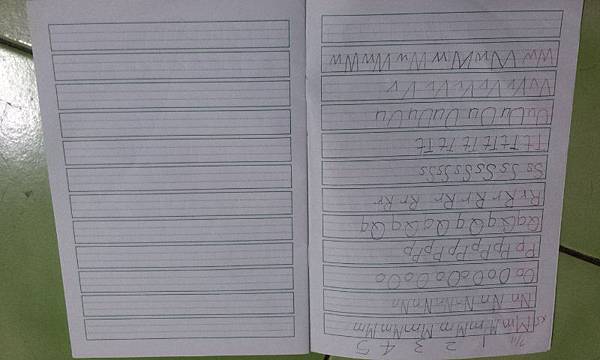 1 2 3 4 5
Mm Mm Mm Mm Mm Mm
Nn Nn Nn Nn Nn Nn
Oo Oo Oo Oo Oo Oo
Pp Pp Pp Pp Pp Pp
Qq Qq Qq Qq Qq Qq
Rr Rr Rr Rr Rr Rr
Ss Ss Ss Ss Ss Ss
Tt Tt Tt Tt Tt Tt
Uu Uu Uu Uu Uu Uu
Vv Vv Vv Vv Vv Vv
Ww Ww Ww Ww Ww Ww